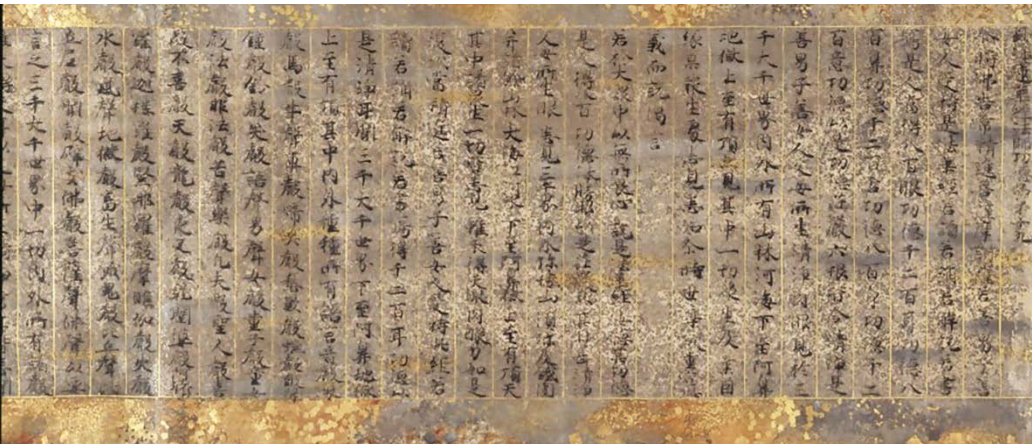 女人受持是法華經若讀若誦若解說若書
寫是人當得八百眼功德千二百耳功德八
百鼻功德千二百舌功德八百身功德千二
百意功德以是功德莊嚴六根皆令清淨是
善男子善女人父母所生清淨肉眼見於三
千大千世界內外所有山林河海下至阿鼻
地獄上至有頂亦見其中一切眾生及業因
緣果報生處悉見悉知尒時世尊欲重宣此
義而說偈言
若於大眾中以無所畏心說是法華經汝聽其功德
是人得八百功德殊勝眼以是莊嚴故其目甚清淨
父母所生眼悉見三千界內外弥樓山須弥及鐵圍
并諸餘山林大海江河水下至阿鼻獄上至有頂天
其中諸眾生一切皆悉見雖未得天眼肉眼力如是
復次常精進若善男子善女人受持此經若
讀若誦若解說若書寫得千二百耳功德以
是清淨耳聞三千大千世界下至阿鼻地獄
上至有頂其中內外種種所有語言音聲象
聲馬聲牛聲車聲啼哭聲愁歎聲螺聲鼓聲
鍾聲鈴聲笑聲語聲男聲女聲童子聲童女
聲法聲非法聲苦聲樂聲凡夫聲聖人聲喜
聲不喜聲天聲龍聲夜叉聲乾闥婆聲阿修
羅聲迦樓羅聲緊那羅聲摩睺羅伽聲火聲
水聲風聲地獄聲畜生聲餓鬼聲比丘聲比
丘尼聲聲聞聲辟支佛聲菩薩聲佛聲以要
言之三千大千世界中一切內外所有諸聲